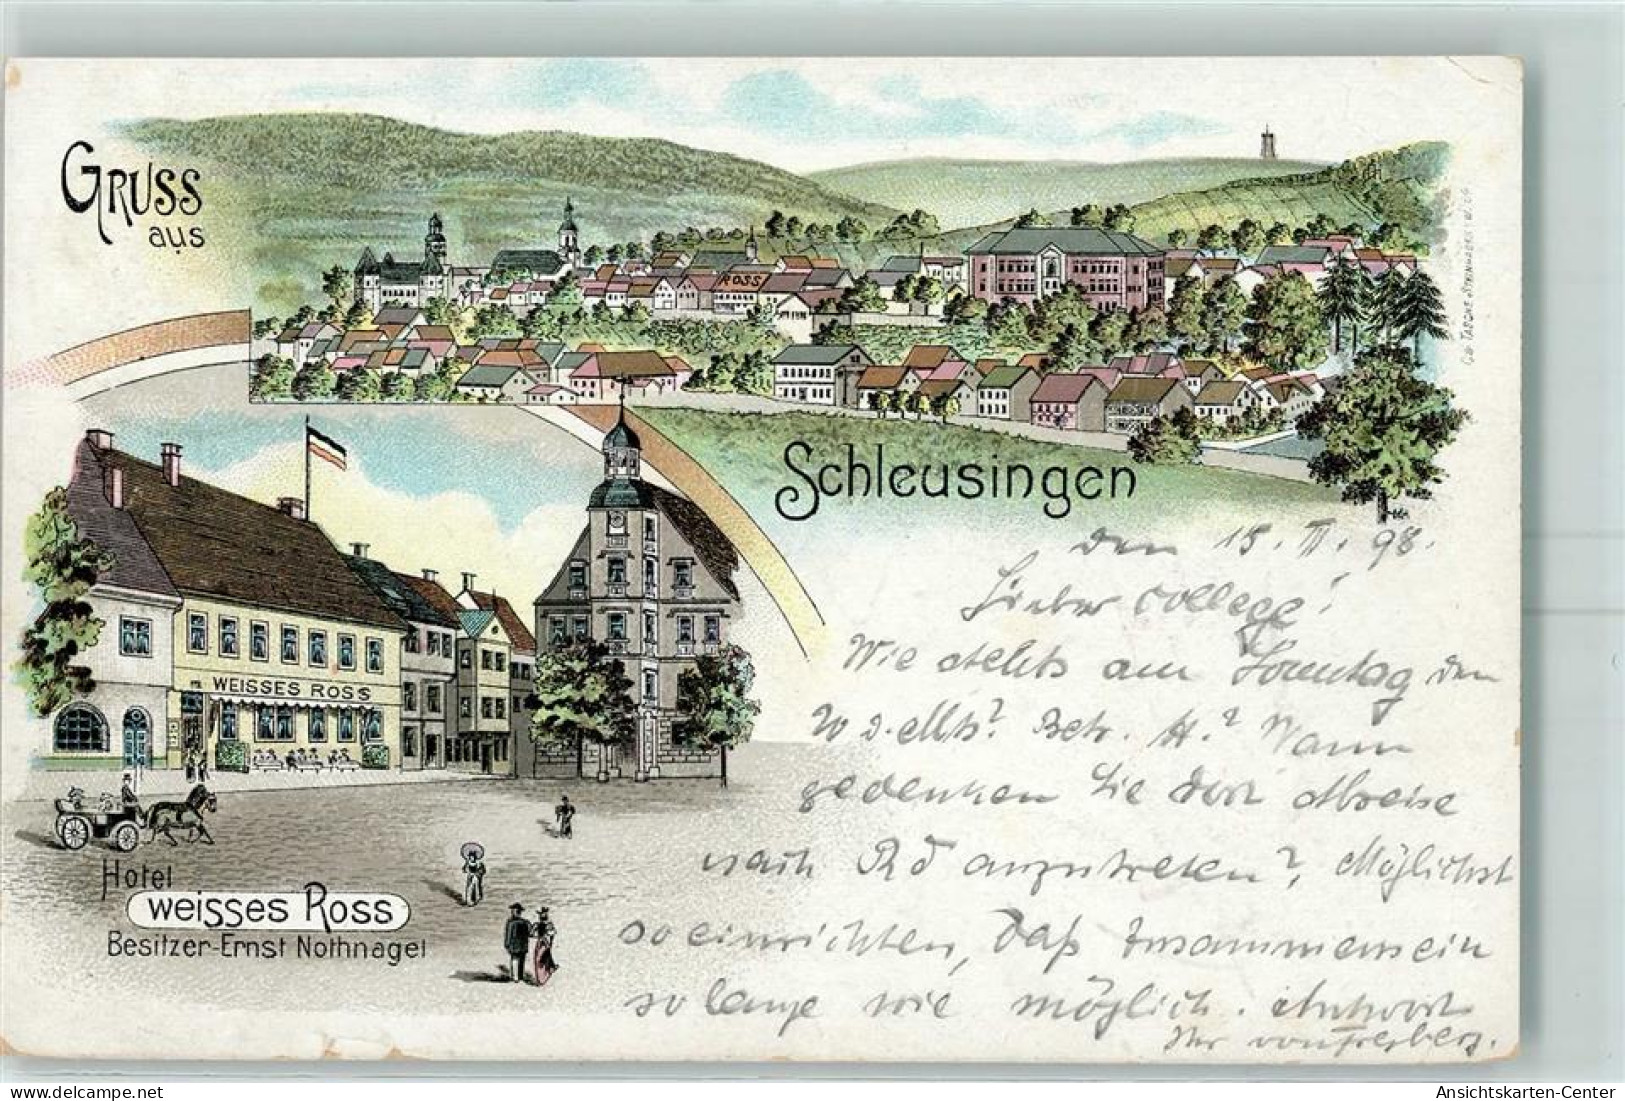 GRUSS
aus
ROSS
Schleusingen
WEISSES ROSS
Hotel
weisses Ross
Besitzer-Ernst Nothnagel
den 15. II. 98.
Lieber College!
Wie stehts am Sonntag den
Betr. H.? Wann
gedenken Sie dort Abreise
nach Rd anzutreten? Möglichst
so einrichten, daß Zusammensein
so lange wie möglich. Antwort
Ihr
Ansichtskarten-Center